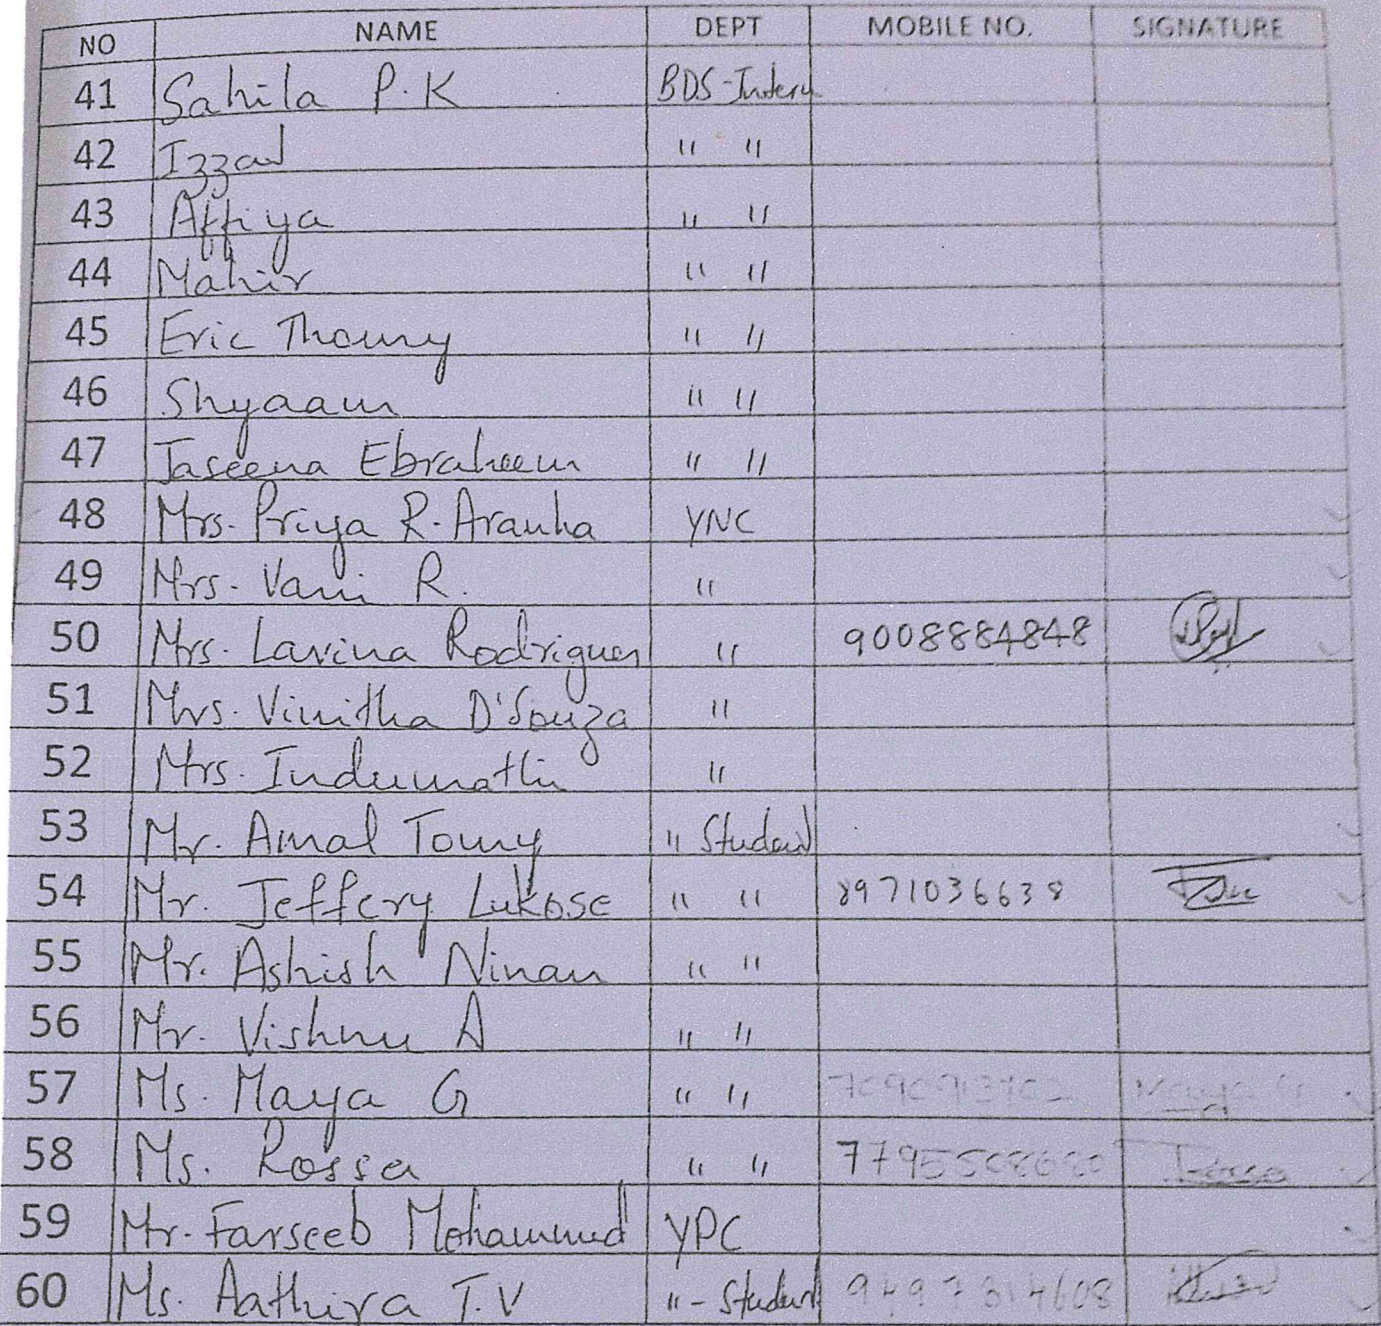 NO NAME DEPT MOBILE NO. SIGNATURE
41 Sahila P.K BDS-Intern
42 Izzad " "
43 Affiya " "
44 Mahir " "
45 Eric Thomy " "
46 Shyaam " "
47 Jaseena Ebraheem " "
48 Mrs. Priya R. Aranha YNC
49 Mrs. Vani R. "
50 Mrs. Lavina Rodrigues " 9008884848
51 Mrs. Vinitha D'Souza "
52 Mrs. Indumathi "
53 Mr. Amal Tomy " Student
54 Mr. Jeffery Lukose " " 8971036638
55 Mr. Ashish Ninan " "
56 Mr. Vishnu A " "
57 Ms. Maya G " "
58 Ms. Rossa " "
59 Mr. Farseeb Mohammed YPC
60 Ms. Aathira T.V " - Student